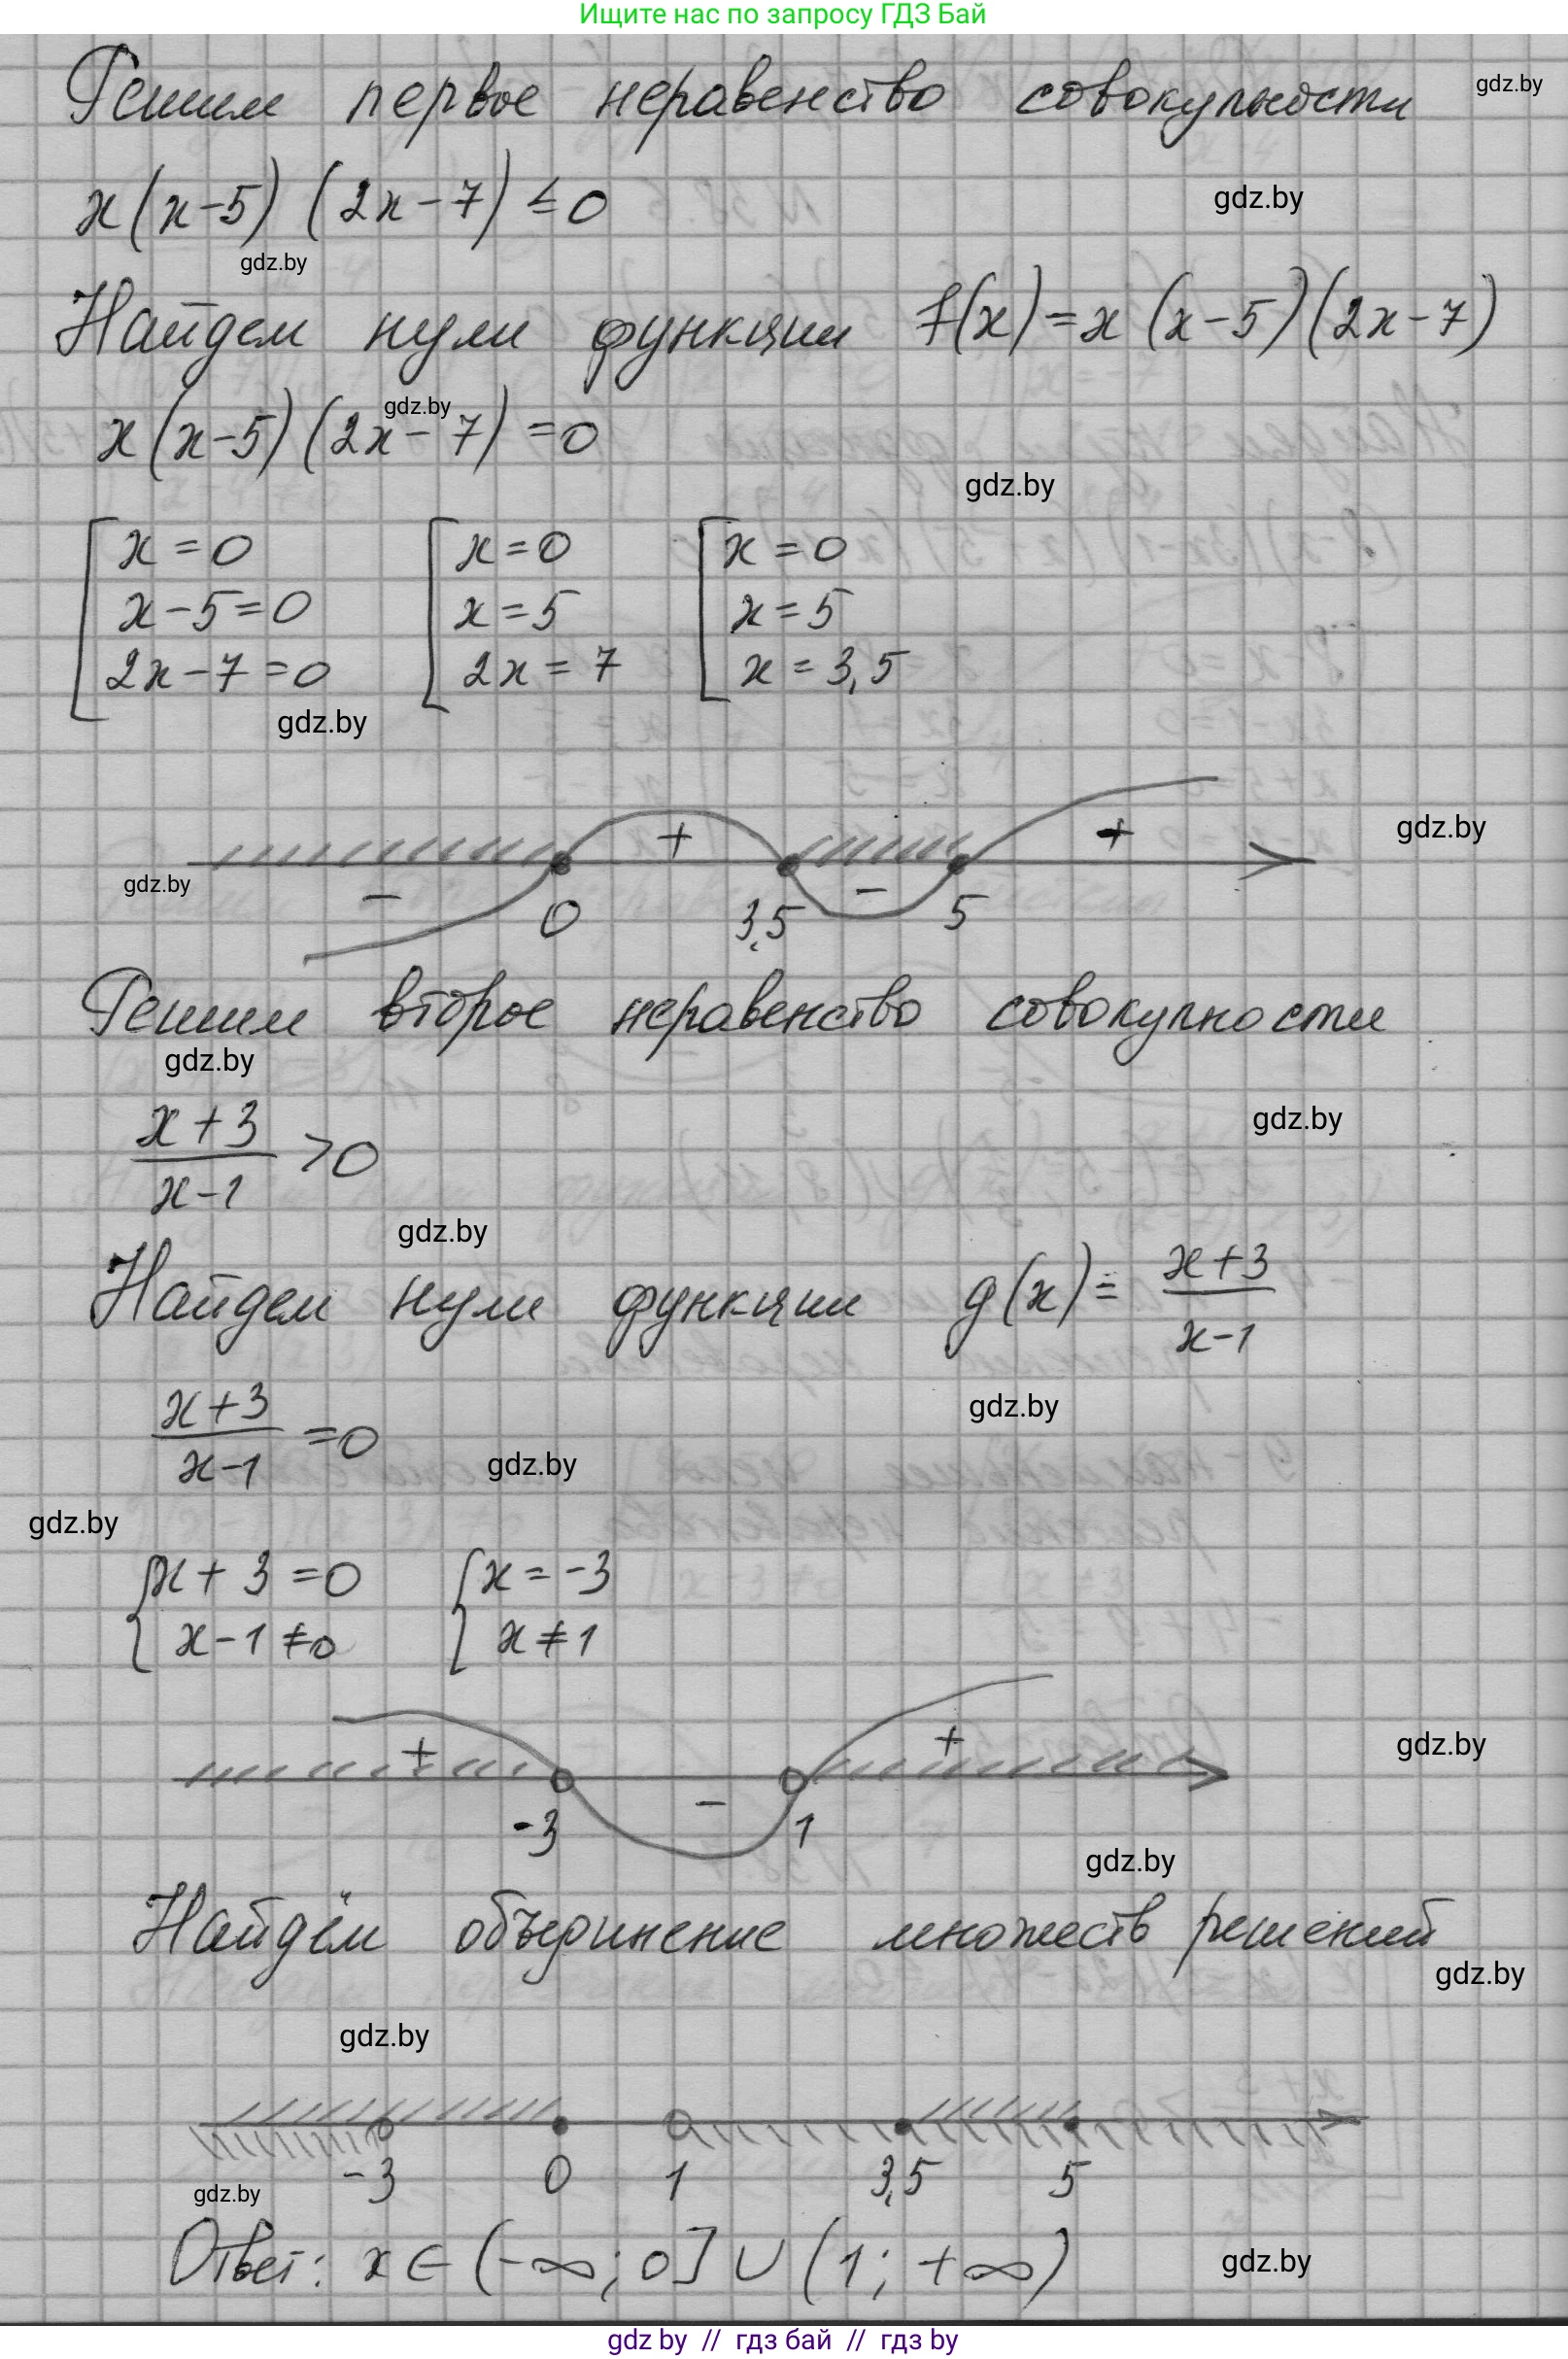 Ищите нас по запросу ГДЗ Бай
Решим первое неравенство совокупности
gdz.by
x(x-5)(2x-7)≤0
gdz.by
gdz.by
Найдем нули функции f(x)=x(x-5)(2x-7)
gdz.by
x(x-5)(2x-7)=0
gdz.by
[x=0 [x=0 [x=0
x-5=0 x=5 x=5
2x-7=0 2x=7 x=3,5
gdz.by
+ +
gdz.by
gdz.by
- -
0 3,5 5
Решим второе неравенство совокупности
gdz.by
gdz.by
x+3
>0
x-1
gdz.by
Найдем нули функции g(x)= x+3
x-1
x+3
=0
x-1
gdz.by
gdz.by
gdz.by
{x+3=0 {x=-3
x-1≠0 x≠1
+ +
gdz.by
-
-3 1
gdz.by
Найдём объединение множеств решений
gdz.by
gdz.by
-3 0 1 3,5 5
gdz.by
Ответ: x∈(-∞;0]∪(1;+∞)
gdz.by
gdz by // гдз бай // гдз by